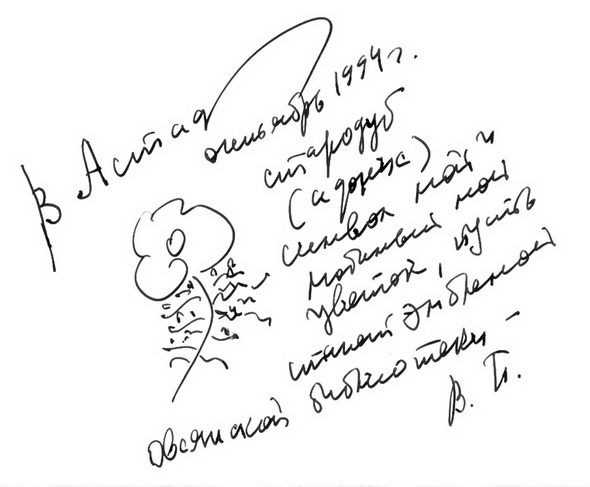 В Астаф
октябрь 1994 г.
стародуб
(адонис)
символ мой и
любимый мой
цветок, пусть
станет эмблемой
овсянской библиотеки –
В. П.